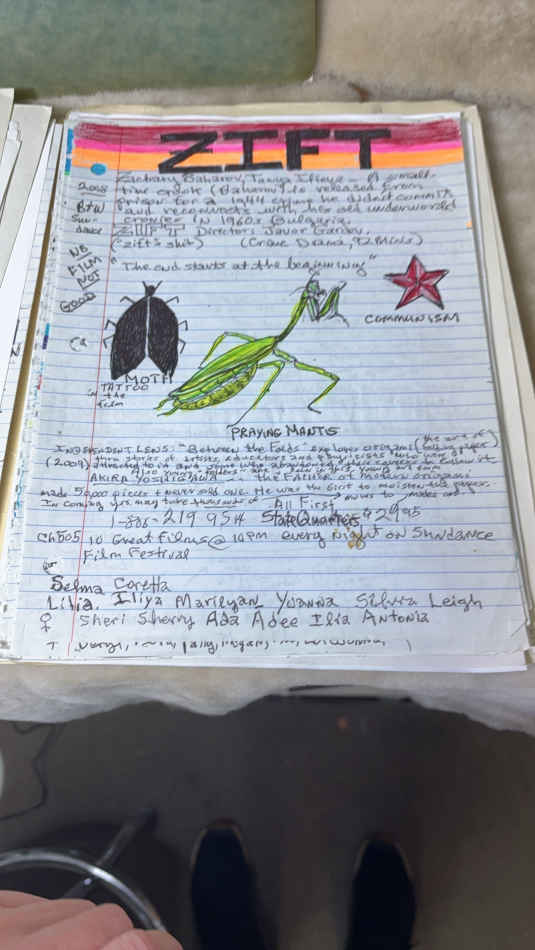 ZIFT
Zachary Baharov, Tanya Ilieva - A small-
2008 time crook (Baharov) is released from
BTW prison for a 1944 crime he didn't commit
Sun- and reconnects with his old underworld
dance cronies in 1960s Bulgaria.
Director: Javor Gardev.
("zift = shit) (Crime Drama, 92 Mins)
NB
FILM
NOT
GOOD
"The end starts at the beginning"
COMMUNISM
MOTH
TATTOO
in the
film
PRAYING MANTIS
INDEPENDENT LENS: "Between the Folds" explores origami (the art of folding paper)
(2009) thru stories of artists, educators and physicists who were
attracted to it and some who abandoned their careers to follow it.
AKIRA YOSHIZAWA - the FATHER of modern origami
made 50,000 pieces + never sold one. He was the first to moisten the paper.
All First
State Quarters $29.95
Ch505 10 Great Films @ 10pm every night on Sundance
Film Festival
Selma Coretta
Lilia, Iliya Marilyan Yoanna Silvia Leigh
♀ Sheri Sherry Ada Adee Ilia Antonia